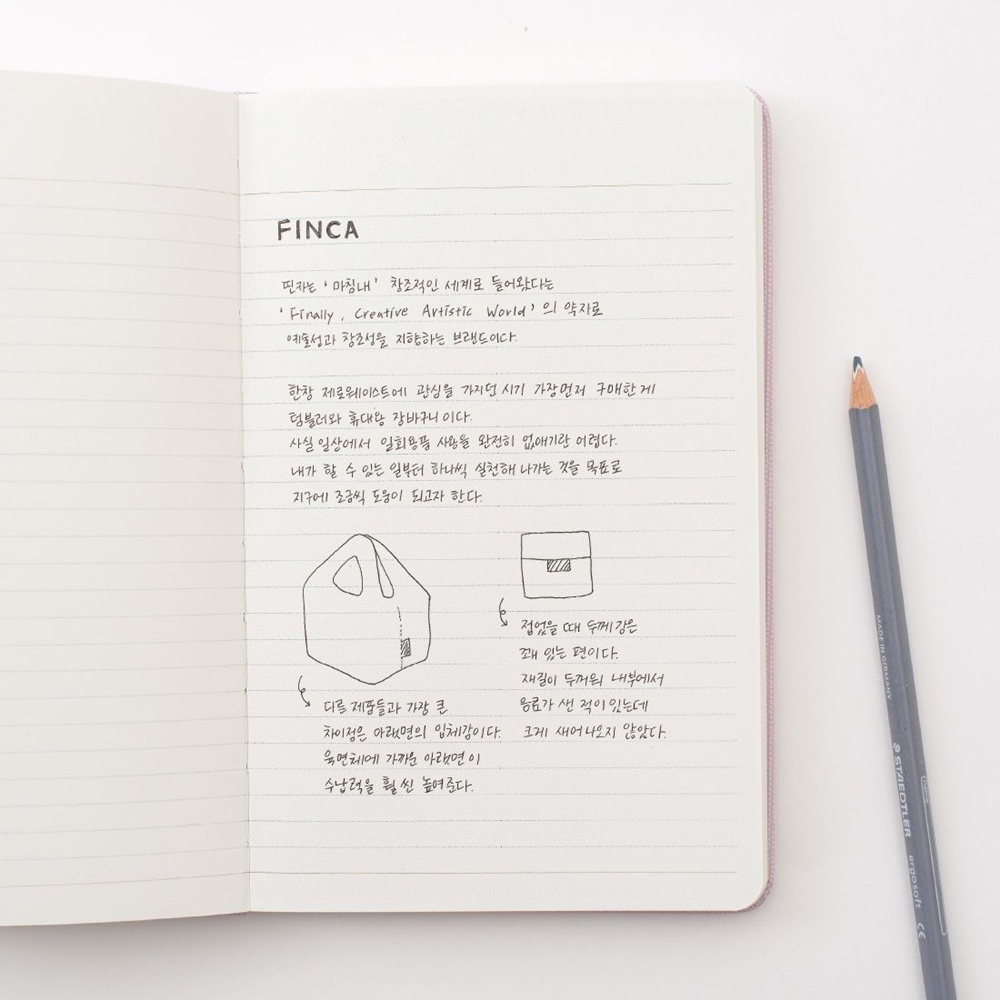 FINCA
핀카는 '마침내' 창조적인 세계로 들어왔다는
'Finally, Creative Artistic World'의 약자로
예술성과 창조성을 지향하는 브랜드이다.
한창 제로웨이스트에 관심을 가지던 시기 가장먼저 구매한게
텀블러와 휴대용 장바구니이다.
사실 일상에서 일회용품 사용을 완전히 없애기란 어렵다.
내가 할 수 있는 일부터 하나씩 실천해 나가는 것을 목표로
지구에 조금씩 도움이 되고자 한다.
다른 제품들과 가장 큰
차이점은 아랫면의 입체감이다.
육면체에 가까운 아랫면이
수납력을 훨씬 높여준다.
접었을 때 두께감은
꽤 있는 편이다.
재질이 두꺼워 내부에서
음료가 샌 적이 있는데
크게 새어나오지 않았다.
MADE IN GERMANY
STAEDTLER
ergosoft
CE